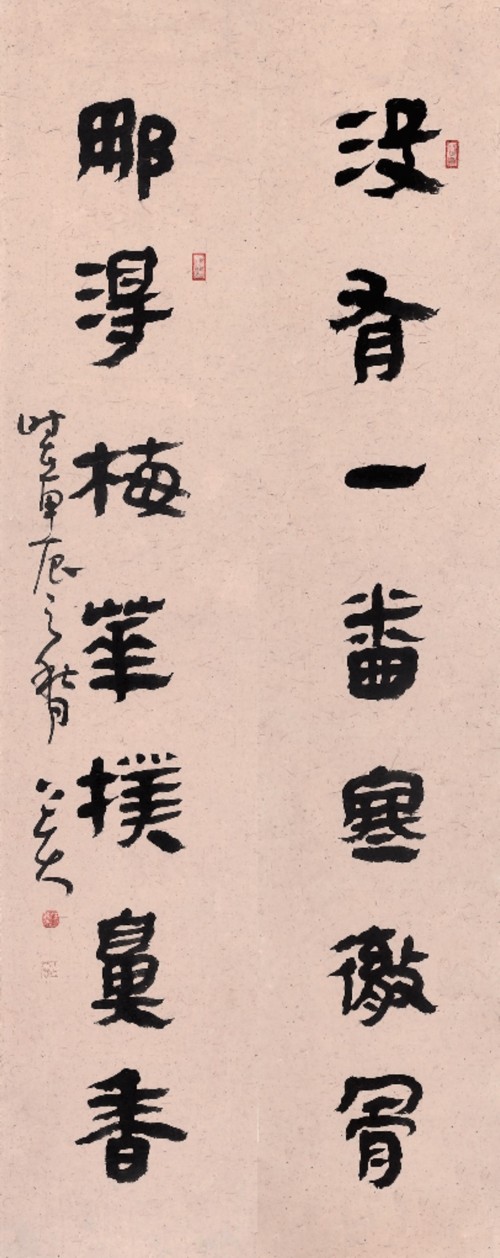 没有一番寒徹骨
那得梅華撲鼻香
时在庚辰之秋月